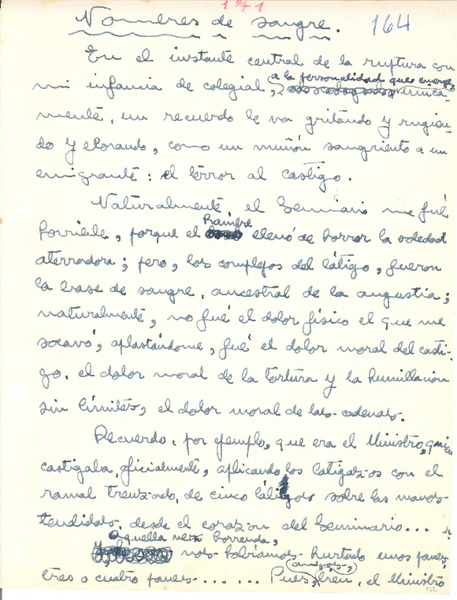 171
164
Nombres de sangre.
En el instante central de la ruptura con
mi infancia de colegial, a la personalidad que
mente, un recuerdo le va gritando y rugien-
do y llorando, como un muñón sangriento a un
emigrante: el terror al castigo.
Naturalmente, el Seminario me fué
horrible, porque el hambre llenó de horror la soledad
aterradora; pero, los complejos del látigo, fueron
la base de sangre, ancestral de la angustia;
naturalmente, no fué el dolor físico el que me
socavó, aplastándome, fué el dolor moral del casti-
go, el dolor moral de la tortura y la humillación
sin límites, el dolor moral de las cadenas.
Recuerdo, por ejemplo, que era el Ministro, quien
castigaba, oficialmente, aplicando los latigazos con el
ramal trenzado, de cinco látigos sobre las manos
tendidas, desde el corazón del Seminario...
Aquella vez horrenda,
nos habíamos hurtado unos panes,
tres o cuatro panes...... Pues, amigos, bien, el Ministro